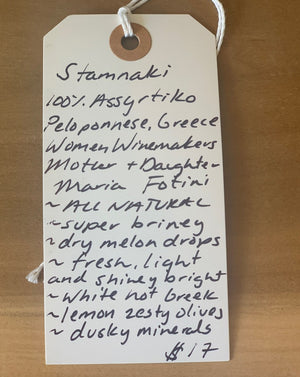 Stamnaki
100% Assyrtiko
Peloponnese, Greece
Women Winemakers
Mother + Daughter
Maria Fotini
~ ALL NATURAL
~ super briney
~ dry melon drops
~ fresh, light
and shiney bright
~ white hot
~ lemon zesty olives
~ dusky minerals
$17